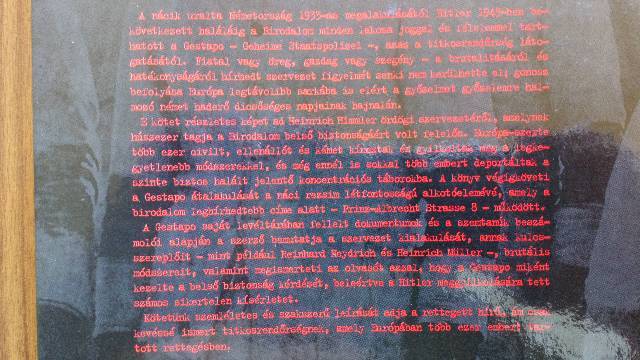 A nácik uralta Németország 1933-as megalakulásától Hitler 1945-ben be-
következett haláláig a Birodalom minden lakosa joggal és félelemmel tart-
hatott a Gestapo - Geheime Staatspolizei -, azaz a titkosrendőrség láto-
gatásától. Fiatal vagy öreg, gazdag vagy szegény - a brutalitásáról és
hatékonyságáról hírhedt szervezet figyelmét senki nem kerülhette el; gonosz
befolyása Európa legtávolibb sarkába is elért a győzelmet győzelemre hal-
mozó német haderő dicsőséges napjainak hajnalán.
E kötet részletes képet ad Heinrich Himmler ördögi szervezetéről, amelynek
húszezer tagja a Birodalom belső biztonságáért volt felelős. Európa-szerte
több ezer civilt, ellenállót és kémet kínoztak és gyilkoltak meg a legke-
gyetlenebb módszerekkel, és még ennél is sokkal több embert deportáltak a
szinte biztos halált jelentő koncentrációs táborokba. A könyv végigköveti
a Gestapo átalakulását a náci rezsim létfontosságú alkotóelemévé, amely a
birodalom leghírhedtebb címe alatt - Prinz-Albrecht Strasse 8 - működött.
A Gestapo saját levéltárában fellelt dokumentumok és a szemtanúk beszá-
molói alapján a szerző bemutatja a szervezet kialakulását, annak kulcs-
szereplőit - mint például Reinhard Heydrich és Heinrich Müller -, brutális
módszereit, valamint megismerteti az olvasót azzal, hogy a Gestapo miként
kezelte a belső biztonság kérdését, beleértve a Hitler meggyilkolására tett
számos sikertelen kísérletet.
Kötetünk szemléletes és szakszerű leírását adja a rettegett hírű, ám csak
kevéssé ismert titkosrendőrségnek, amely Európában több ezer embert tar-
tott rettegésben.